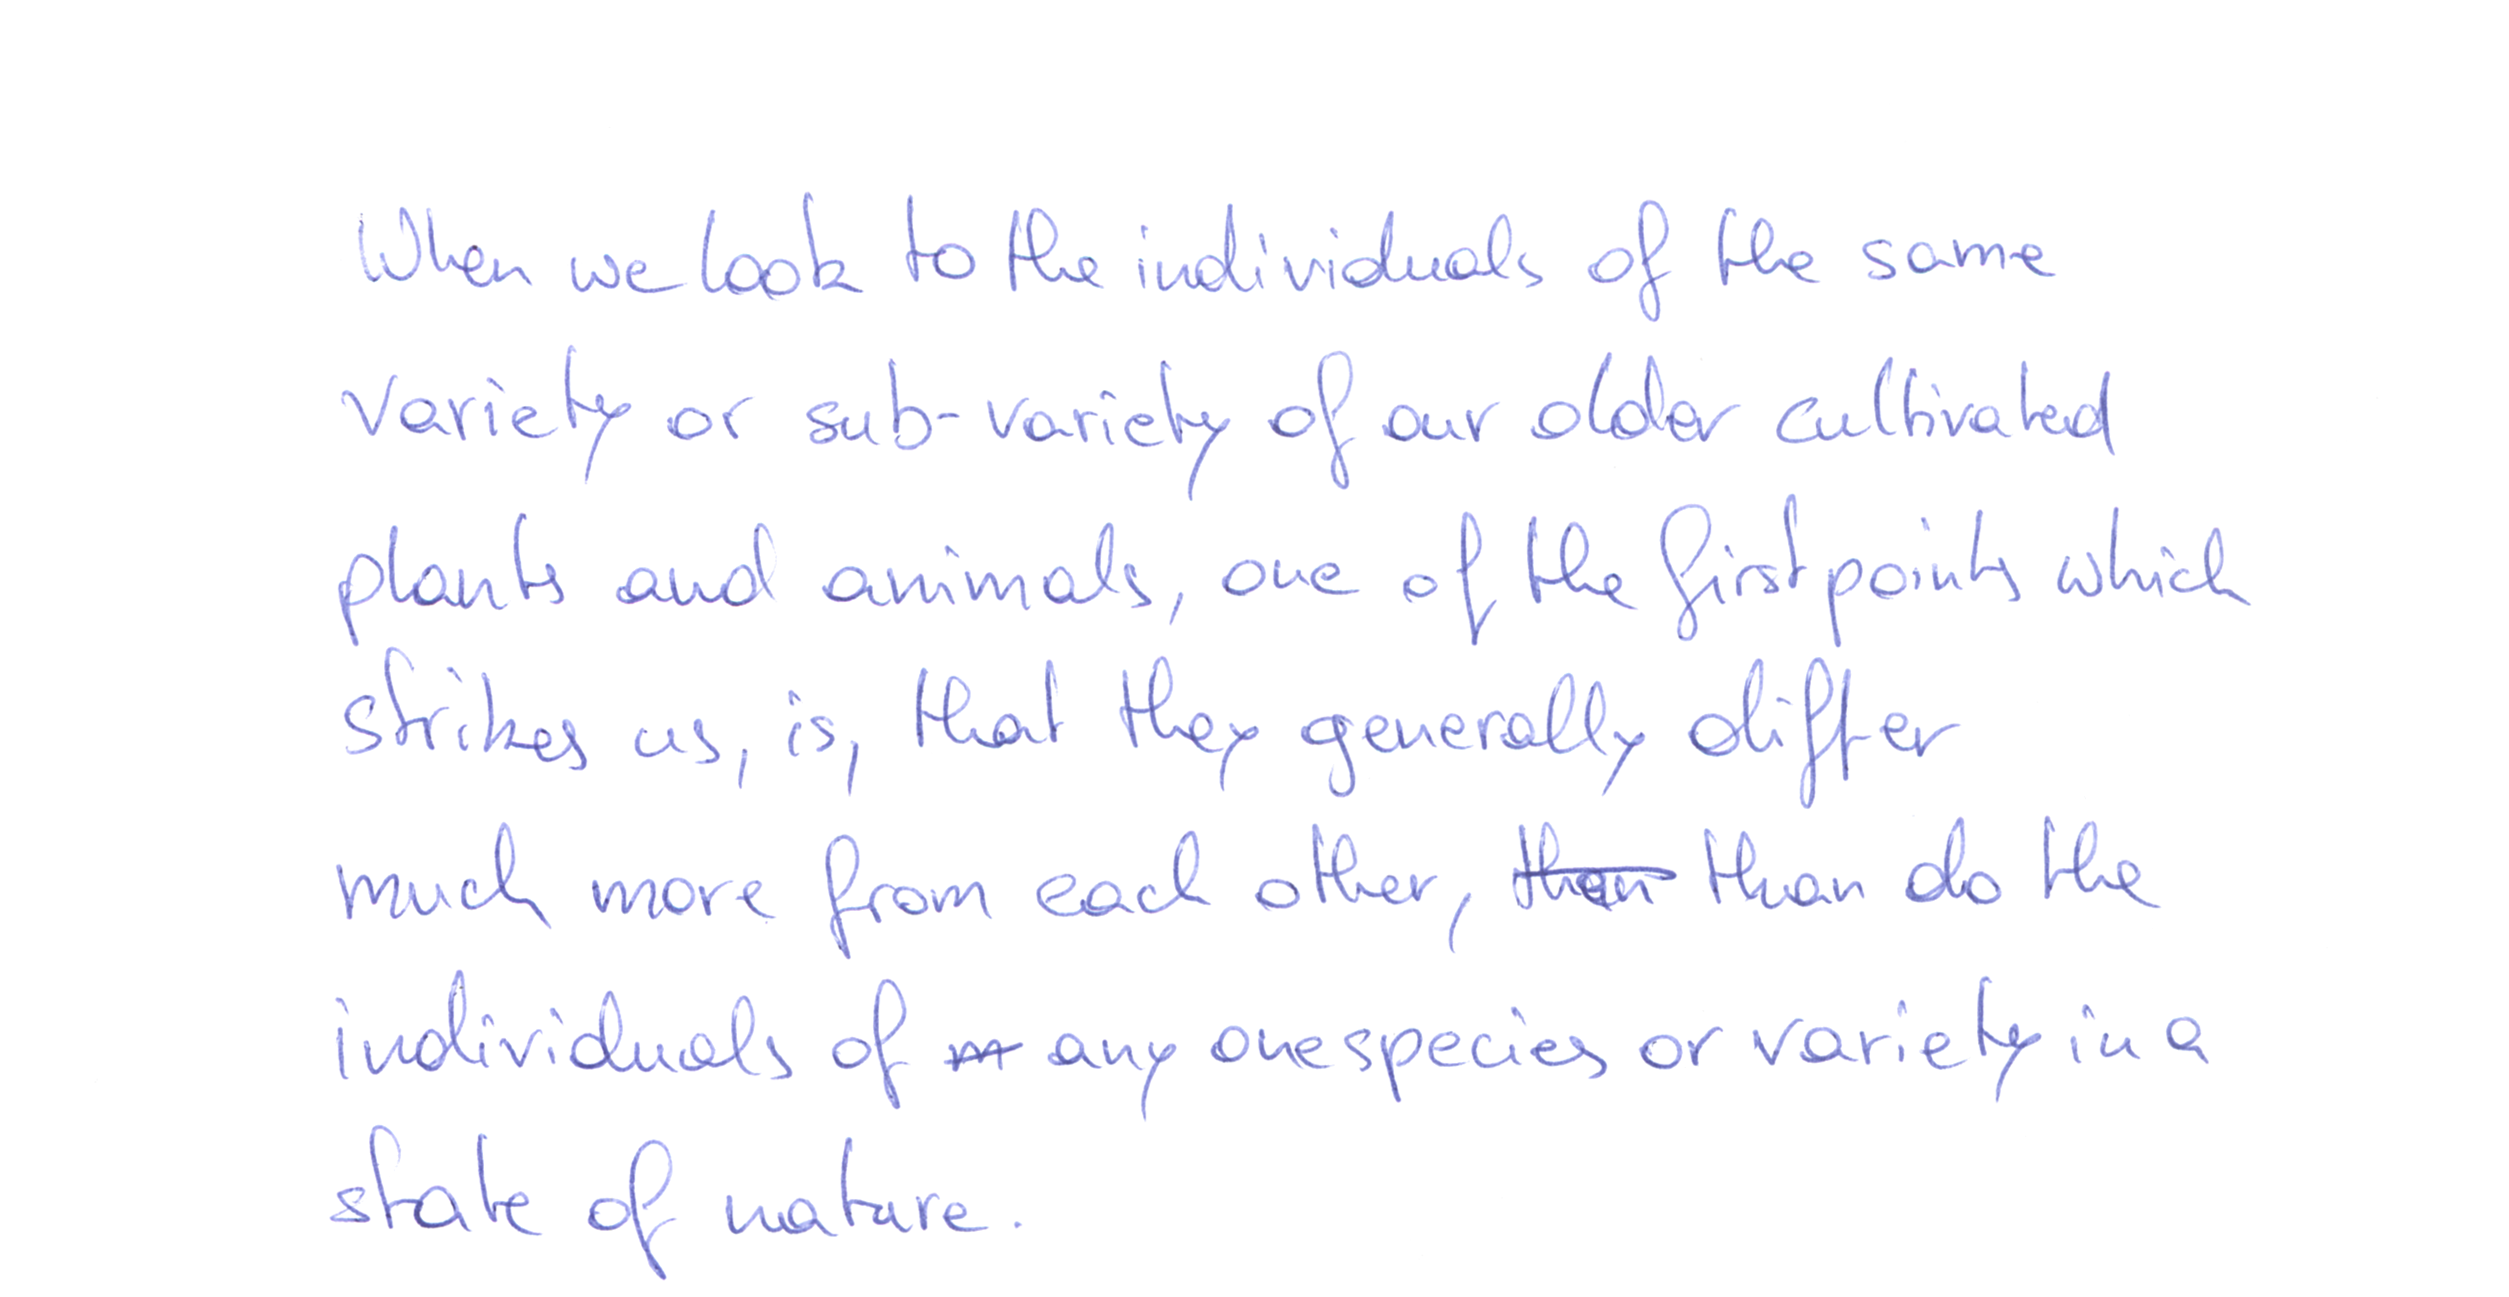 When we look to the individuals of the same
variety or sub-variety of our older cultivated
plants and animals, one of the first points which
strikes us, is, that they generally differ
much more from each other, than than do the
individuals of m any one species or variety in a
state of nature.